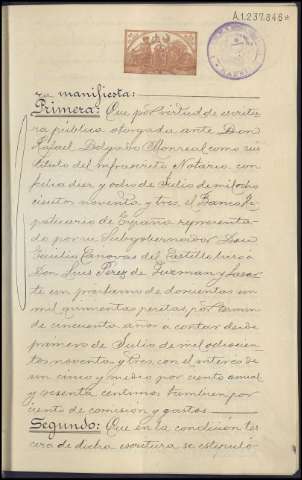 A1.237.848*
za manifiesta:
Primera: Que por virtud de escritu
ra pública otorgada ante Don
Rafael Delgado Monreal como sus
tituto del infrascrito Notario con
fecha diez y ocho de Julio de mil ocho
cientos noventa y tres, el Banco Hi
potecario de España representa
do por su Subgobernador Don
Emilio Cánovas del Castillo hizo a
Don Luis Perez de Guzman y Lasar
te un préstamo de doscientas un
mil quinientas pesetas, por termino
de cincuenta años a contar desde
primero de Julio de mil ochocien
tos noventa y tres, con el interes de
un cinco y medio por ciento anual
y sesenta centimos tambien por
ciento de comision y gastos
Segundo: Que en la condición ter
cera de dicha escritura se estipuló